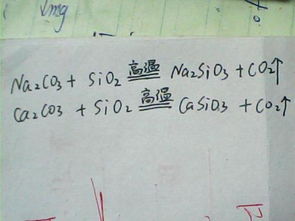 mg
Na₂CO₃ + SiO₂ 高温 Na₂SiO₃ + CO₂↑
Ca₂CO₃ + SiO₂ 高温 CaSiO₃ + CO₂↑